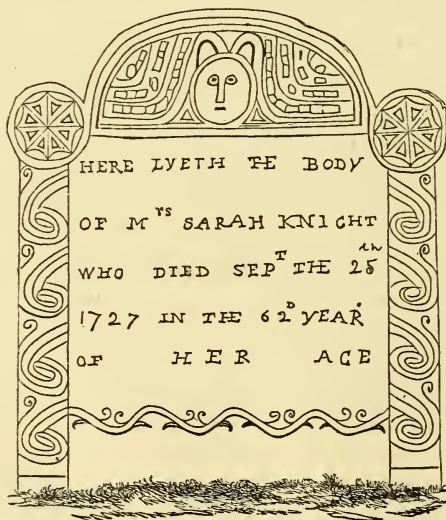 HERE LYETH TE BODY
OF Mrs SARAH KNIGHT
WHO DIED SEPT THE 25th
1727 IN THE 62D YEAR
OF HER AGE